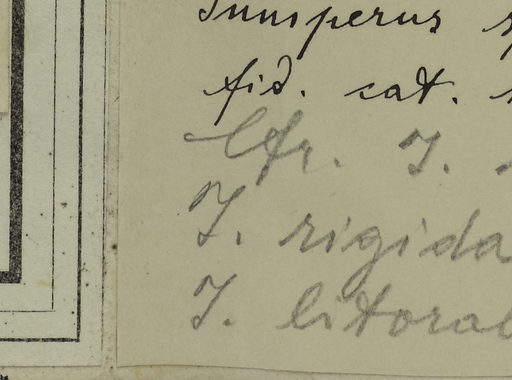 Juniperus
fid. cat.
Cfr. J.
J. rigida
J. litoral